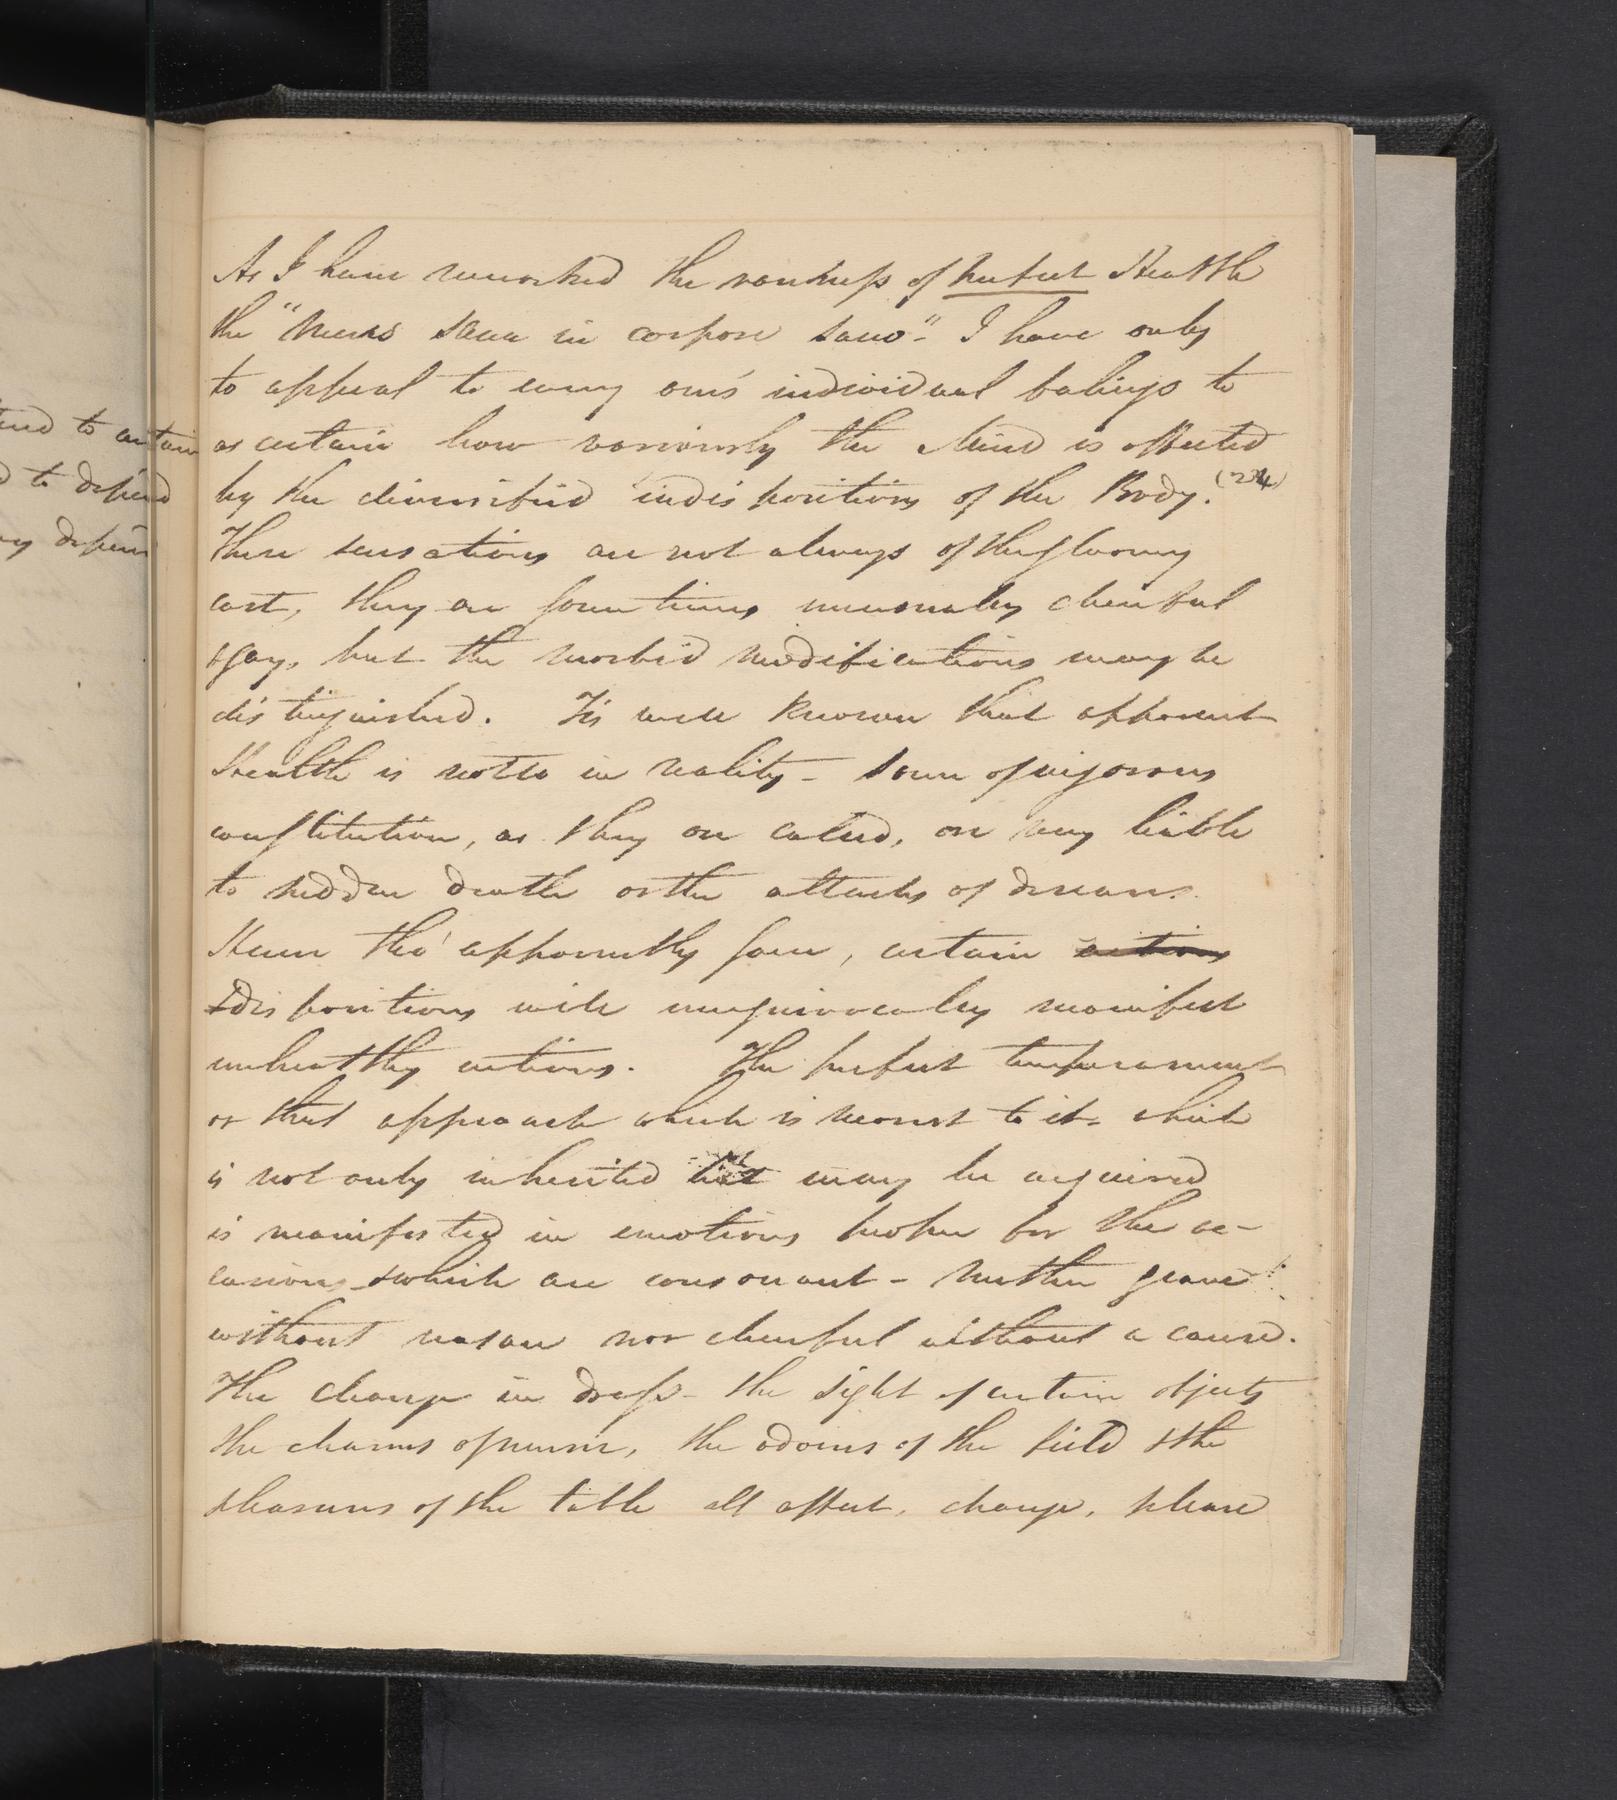 As I have remarked the rareness of perfect Health
the "Mens sana in corpore sano" - I have only
to appeal to every one's individual feelings to
ascertain how variously the Mind is affected
by the diversified indispositions of the Body. (24)
These sensations are not always of the gloomy
cast, they are sometimes unusually cheerful
& gay, but the morbid modifications may be
distinguished. Tis well known that apparent
Health is not so in reality - Some of vigorous
constitution, as they are called, are very liable
to sudden death or the attacks of disease.
Hence tho' apparently sane, certain actions
& dispositions will unequivocally manifest
unhealthy actions. The perfect temperament
or that approach which is nearest to it - which
is not only inherited but may be acquired
is manifested in emotions proper for the oc-
casions & which are consonant - neither grave
without reason nor cheerful without a cause.
The change in dress - the sight of certain objects
the charms of music, the odours of the field & the
pleasures of the table all affect, change, please
tend to certain
to depend
depend